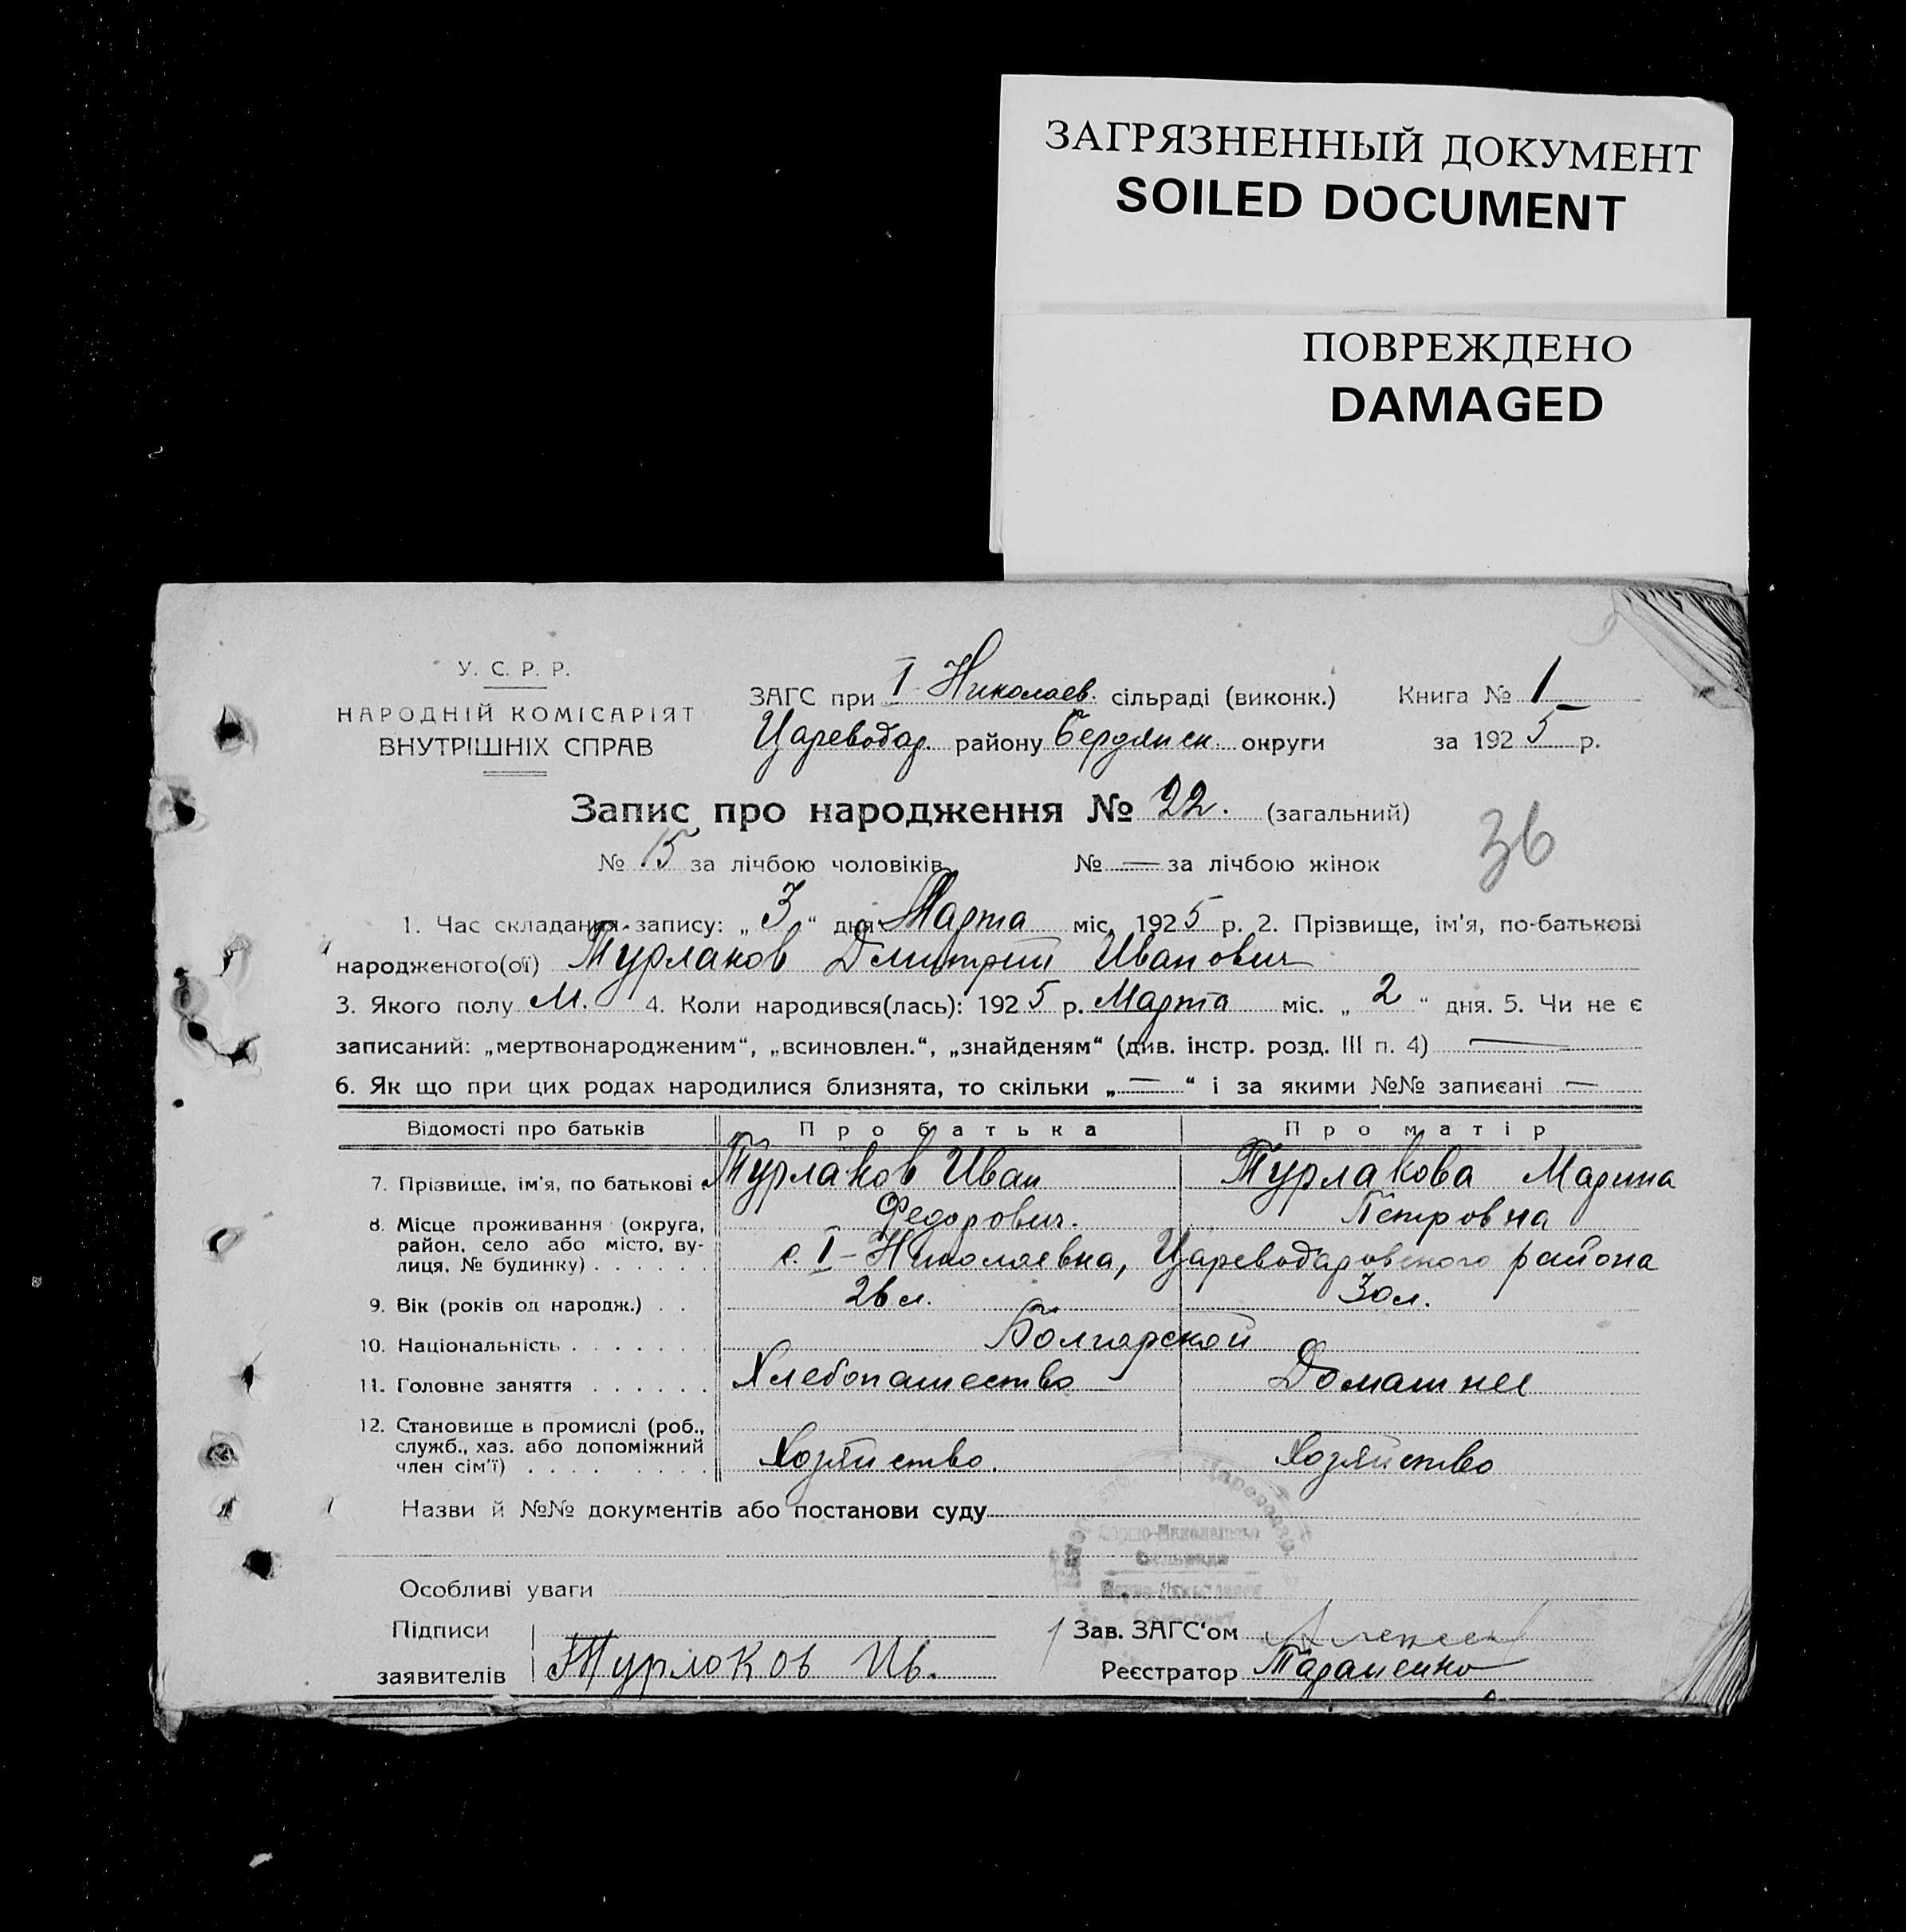 ЗАГРЯЗНЕННЫЙ ДОКУМЕНТ
SOILED DOCUMENT
ПОВРЕЖДЕНО
DAMAGED
У. С. Р. Р.
НАРОДНІЙ КОМІСАРІЯТ
ВНУТРІШНІХ СПРАВ
ЗАГС при I Николаев. сільраді (виконк.) Книга № 1
Цареводар. району Бердянск. округи за 1925 р.
Запис про народження № 22. (загальний)
№ 15 за лічбою чоловіків № — за лічбою жінок
36
1. Час складання запису: „ 3 “ дня Марта міс. 1925 р. 2. Прізвище, ім'я, по-батькові
народженого(ої) Турлаков Дмитрий Иванович
3. Якого полу М. 4. Коли народився(лась): 1925 р. Марта міс. „ 2 “ дня. 5. Чи не є
записаний: „мертвонародженим“, „всиновлен.“, „знайденям“ (див. інстр. розд. III п. 4) —
6. Як що при цих родах народилися близнята, то скільки „ — “ і за якими №№ записані —
Відомості про батьків Про батька Про матір
7. Прізвище, ім'я, по батькові Турлаков Иван Турлакова Марина
Федорович. Петровна
8. Місце проживання (округа,
район, село або місто, ву-
лиця, № будинку) с. I – Николаевка, Цареводаровского района
9. Вік (років од народж.) 26 л. 30 л.
10. Національність Болгарской
11. Головне заняття Хлебопашество Домашнее
12. Становище в промислі (роб.,
служб., хаз. або допоміжний
член сім'ї) Хозяйство. Хозяйство
Назви й №№ документів або постанови суду
Особливі уваги
Підписи
заявителів Турлоков Ив.
Зав. ЗАГС'ом
Реєстратор Тараненко